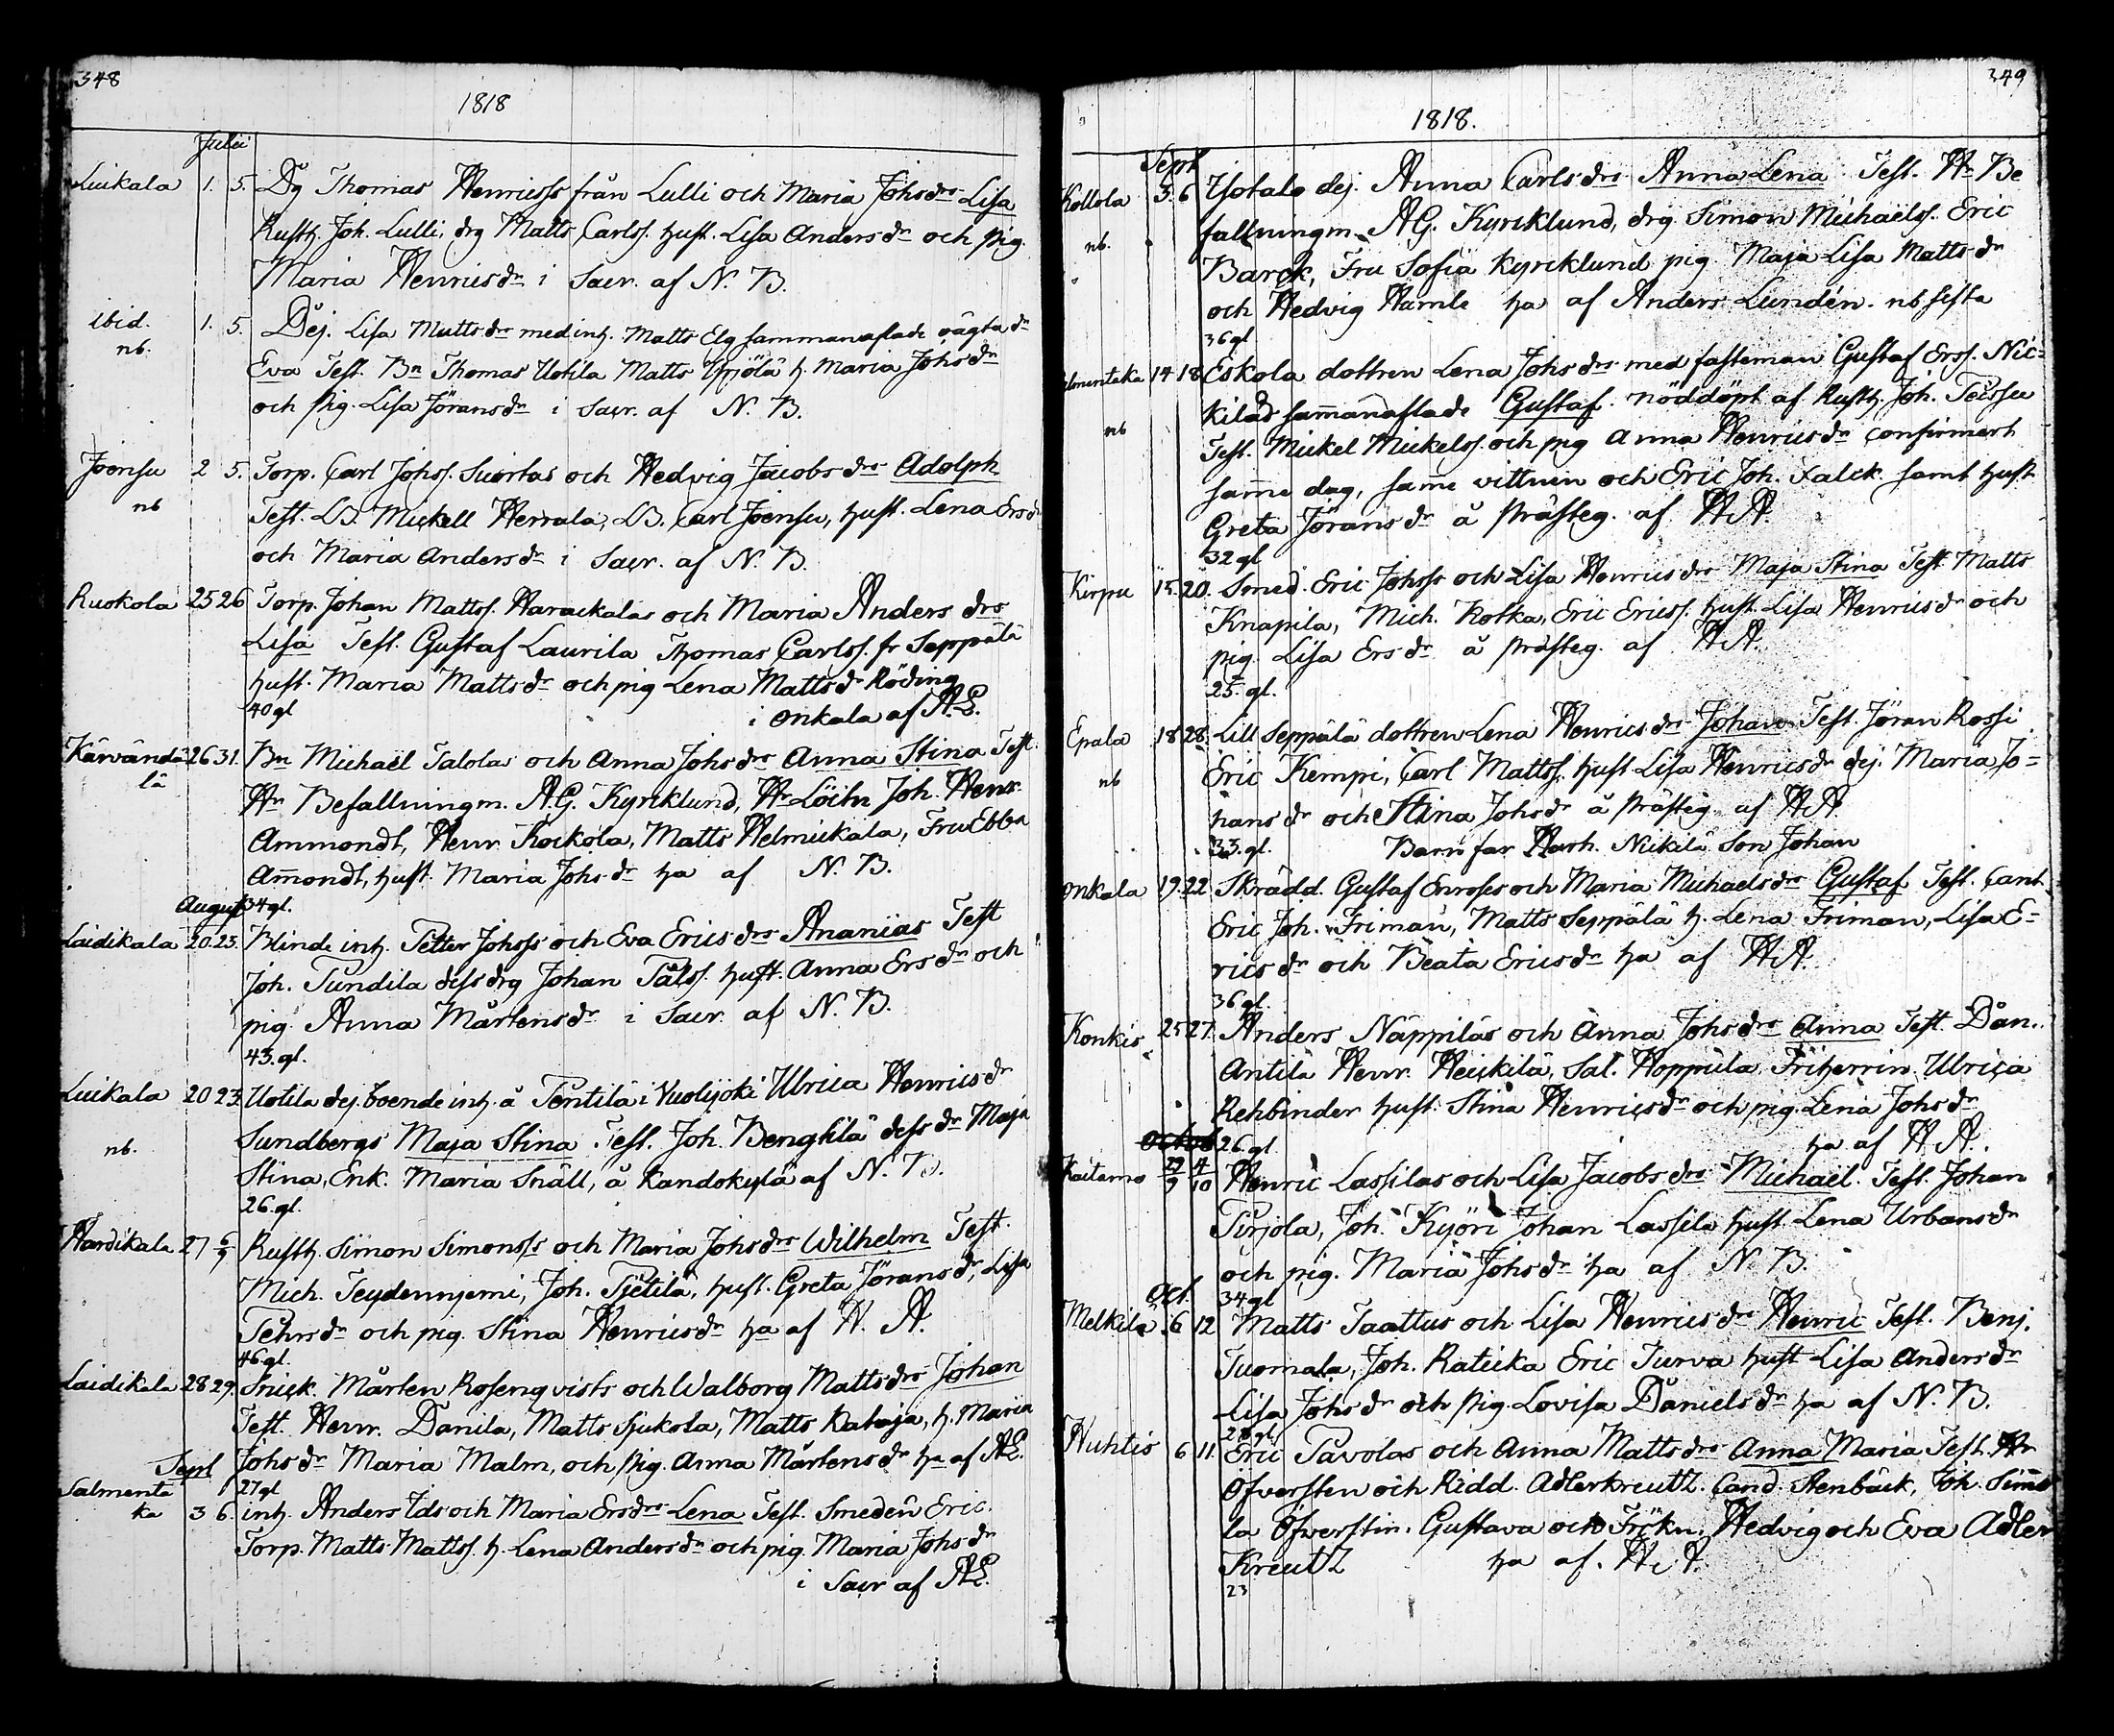 348
1818
Julii
Luikala 1. 5. Dg Thomas Henricss från Lulli och Maria Johsdrs Lisa
Rusth. Joh. Lulli, drg Matts Carlss. hust. Lisa Andersdr och pig.
Maria Henricsdr i Sacr. af N. B.
ibid. 1. 5. Dej. Lisa Mattsdrs med inh. Matts Elg sammanaflade oägta dr
nb.
Eva Test. Bn Thomas Uotila Matts Yrjölä h. Maria Johsdr
och pig. Lisa Jöransdr i Sacr. af N. B.
Joensu 2 5. Torp. Carl Johss. Suontas och Hedvig Jacobsdrs Adolph
nb
Test. LB. Mickell Herrala, LB. Carl Joensu, hust. Lena Ersdr
och Maria Andersdr i Sacr. af N. B.
Ruokola 25 26 Torp. Johan Mattss. Harackalas och Maria Andersdrs
Lisa Test. Gustaf Laurila Thomas Carlss. fr Seppälä
hust. Maria Mattsdr och pig Lena Mattsdr Röding
40 gl i Onkala af AE.
Kärvändä 26 31. Bn Michaël Talolas och Anna Johsdrs Anna Stina Test.
lä
Hr Befallningm. A.G. Kyrcklund, Hr Löitn Joh. Henr.
Ammondt, Henr. Kockola, Matts Helmickala, Fru Ebba
Amondt, hust. Maria Johsdr ha af N. B.
August 34 gl.
Laidikala 20. 23. Blinde inh. Petter Johsss och Eva Ericsdrs Ananias Test
Joh. Pundila dess drg Johan Pålss. hust. Anna Ersdr och
pig. Anna Mårtensdr i Sacr. af N. B.
43. gl.
Luikala 20 23. Uotila dej. boende inh. å Pentilä i Vuolijoki Ulrica Henricsdr
Sundbergs Maja Stina Test. Joh. Bengtilä dess dr Maja
nb.
Stina, Enk. Maria Snäll, å Kandokylä af N. B.
26. gl.
Hardikala 27 6/9 Rusth. Simon Simonss och Maria Johsdrs Wilhelm Test.
Mich. Teydennjemi, Joh. Pjetilä, hust. Greta Jöransdr, Lisa
Pehrsdr och pig. Stina Henricsdr ha af H. A.
46 gl.
Laidikala 28 29. Snick. Mårten Rosenqvists och Walborg Mattsdrs Johan
Test. Henr. Danila, Matts Sjukola, Matts Kataja, h. Maria
Johsdr Maria Malm, och pig. Anna Mårtensdr ha af AE.
Sept 27 gl
Salmenta
ka 3 6. inh. Anders Ids och Maria Ersdrs Lena Test. Smeden Eric
Torp. Matts Mattss. h. Lena Andersdr och pig. Maria Johsdr
i Sacr af AE.
349
1818.
Sept
Kollola 3. 6 Isotalo dej. Anna Carlsdrs Anna Lena Test. Hr Be
nb.
fallningm. A.G. Kyrcklund, drg. Simon Michaëlss. Eric
Barck, Fru Sofia Kyrcklund pig. Maja Lisa Mattsdr
och Hedvig Hamle ha af Anders Lundén. nb. sista
36 gl
Salmentaka 14 18 Eskola dottren Lena Johsdrs med fästeman Gustaf Erss. Nic=
kilas samanaflade Gustaf. nöddöpt af Rusth. Joh. Teissu
nb
Test. Mickel Mickelss. och pig Anna Henricsdr confirmert
same dag, same vittnen och Eric Joh. Falck samt hust
Greta Jöransdr å Prästeg. af HA.
32 gl
Kirpu 15. 20. Smed. Eric Johsss och Lisa Henricsdrs Maja Stina Test Matts
Knapila, Mich. Kotka, Eric Ericss. hust. Lisa Henricsdr och
pig. Lisa Ersdr å Prästeg. af HA.
25. gl.
Epala 18 28. Lill Seppälä dottren Lena Henricsdrs Johan Test. Jöran Rossi
nb
Eric Kempi, Carl Mattss. hust Lisa Henricsdr dej. Maria Jo=
hansdr och Stina Johsdr å Prästeg. af HA.
33. gl. Barnfar Harh. Nickilä Son Johan
Onkala 19. 22. Skrädd. Gustaf Enross och Maria Michaelsdrs Gustaf Test. Cant.
Eric Joh. Friman, Matts Seppälä h. Lena Friman, Lisa E=
ricsdr och Beata Ericsdr ha af HA.
36 gl.
Konkis 25 27. Anders Näppiläs och Anna Johsdrs Anna Test. Dan.
Antilä Henr. Heickilä, Sal. Hoppula Friherrin. Ulrica
Rehbinder hust. Stina Henricsdr och pig. Lena Johsdr
26 gl. ha af H A.
Kaitamo 29/9 4/10 Henric Lassilas och Lisa Jacobsdrs Michaël. Test. Johan
Pirjola, Joh. Kyöri Johan Lassila hust Lena Urbansdr
och pig. Maria Johsdr ha af N. B.
Oct. 34 gl
Melkila 6 12 Matts Taattus och Lisa Henricsdr Henric Test. Benj.
Tuomala, Joh. Raticka Eric Turva hust Lisa Andersdr
Lisa Johsdr och pig. Lovisa Danielsdr ha af N. B.
28 gl
Huhtis 6 11. Eric Pavolas och Anna Mattsdrs Anna Maria Test. Hr
Öfversten och Ridd. Adlerkreutz. Cand. Stenbäck, Joh. Simo
la Öfverstin. Gustava och Frökn. Hedvig och Eva Adler
Kreutz ha af. H A.
23